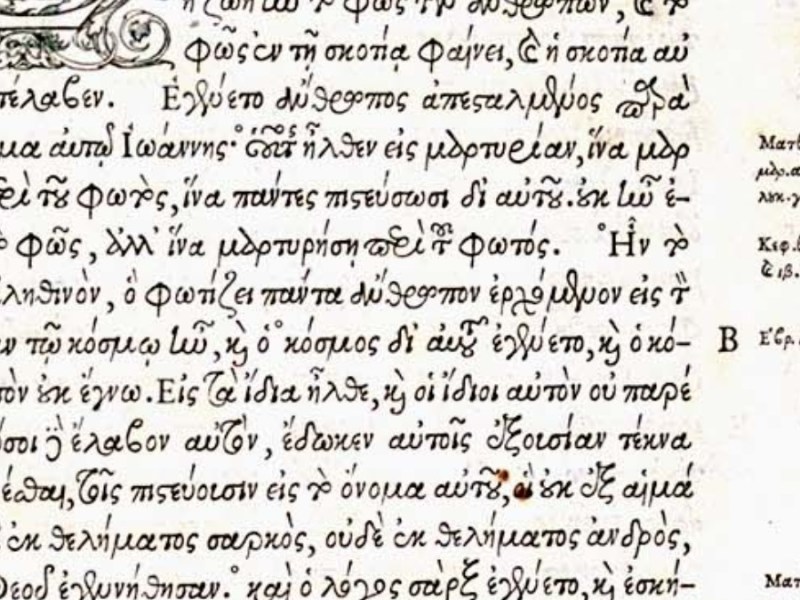 ἡ ζωὴ ἦν τὸ φῶς τῶν ἀνθρώπων, καὶ τὸ
φῶς ἐν τῇ σκοτίᾳ φαίνει, καὶ ἡ σκοτία αὐ
τέλαβεν. Ἐγένετο ἄνθρωπος ἀπεσταλμένος παρὰ
μα αὐτῷ Ἰωάννης· οὗτος ἦλθεν εἰς μαρτυρίαν, ἵνα μαρ
ρὶ τοῦ φωτὸς, ἵνα πάντες πιστεύσωσι δι αὐτοῦ. οὐκ ἦν ἐ-
φῶς, ἀλλ' ἵνα μαρτυρήσῃ περὶ τοῦ φωτός. Ἦν τὸ
ληθινὸν, ὃ φωτίζει πάντα ἄνθρωπον ἐρχόμενον εἰς τὸν
ν τῷ κόσμῳ ἦν, καὶ ὁ κόσμος δι αὐτοῦ ἐγένετο, καὶ ὁ κό-
τὸν οὐκ ἔγνω. Εἰς τὰ ἴδια ἦλθε, καὶ οἱ ἴδιοι αὐτὸν οὐ παρέ
ὅσοι δὲ ἔλαβον αὐτὸν, ἔδωκεν αὐτοῖς ἐξουσίαν τέκνα
έσθαι, τοῖς πιστεύουσιν εἰς τὸ ὄνομα αὐτοῦ, οἳ οὐκ ἐξ αἱμά
ἐκ θελήματος σαρκὸς, οὐδὲ ἐκ θελήματος ἀνδρὸς,
θεοῦ ἐγεννήθησαν. καὶ ὁ λόγος σὰρξ ἐγένετο, καὶ ἐσκή-
Ματθ
μαρ.α
λυκ.γ
Κεφ.
καὶ ιβ.
B
Ἑβρ.
Ματ